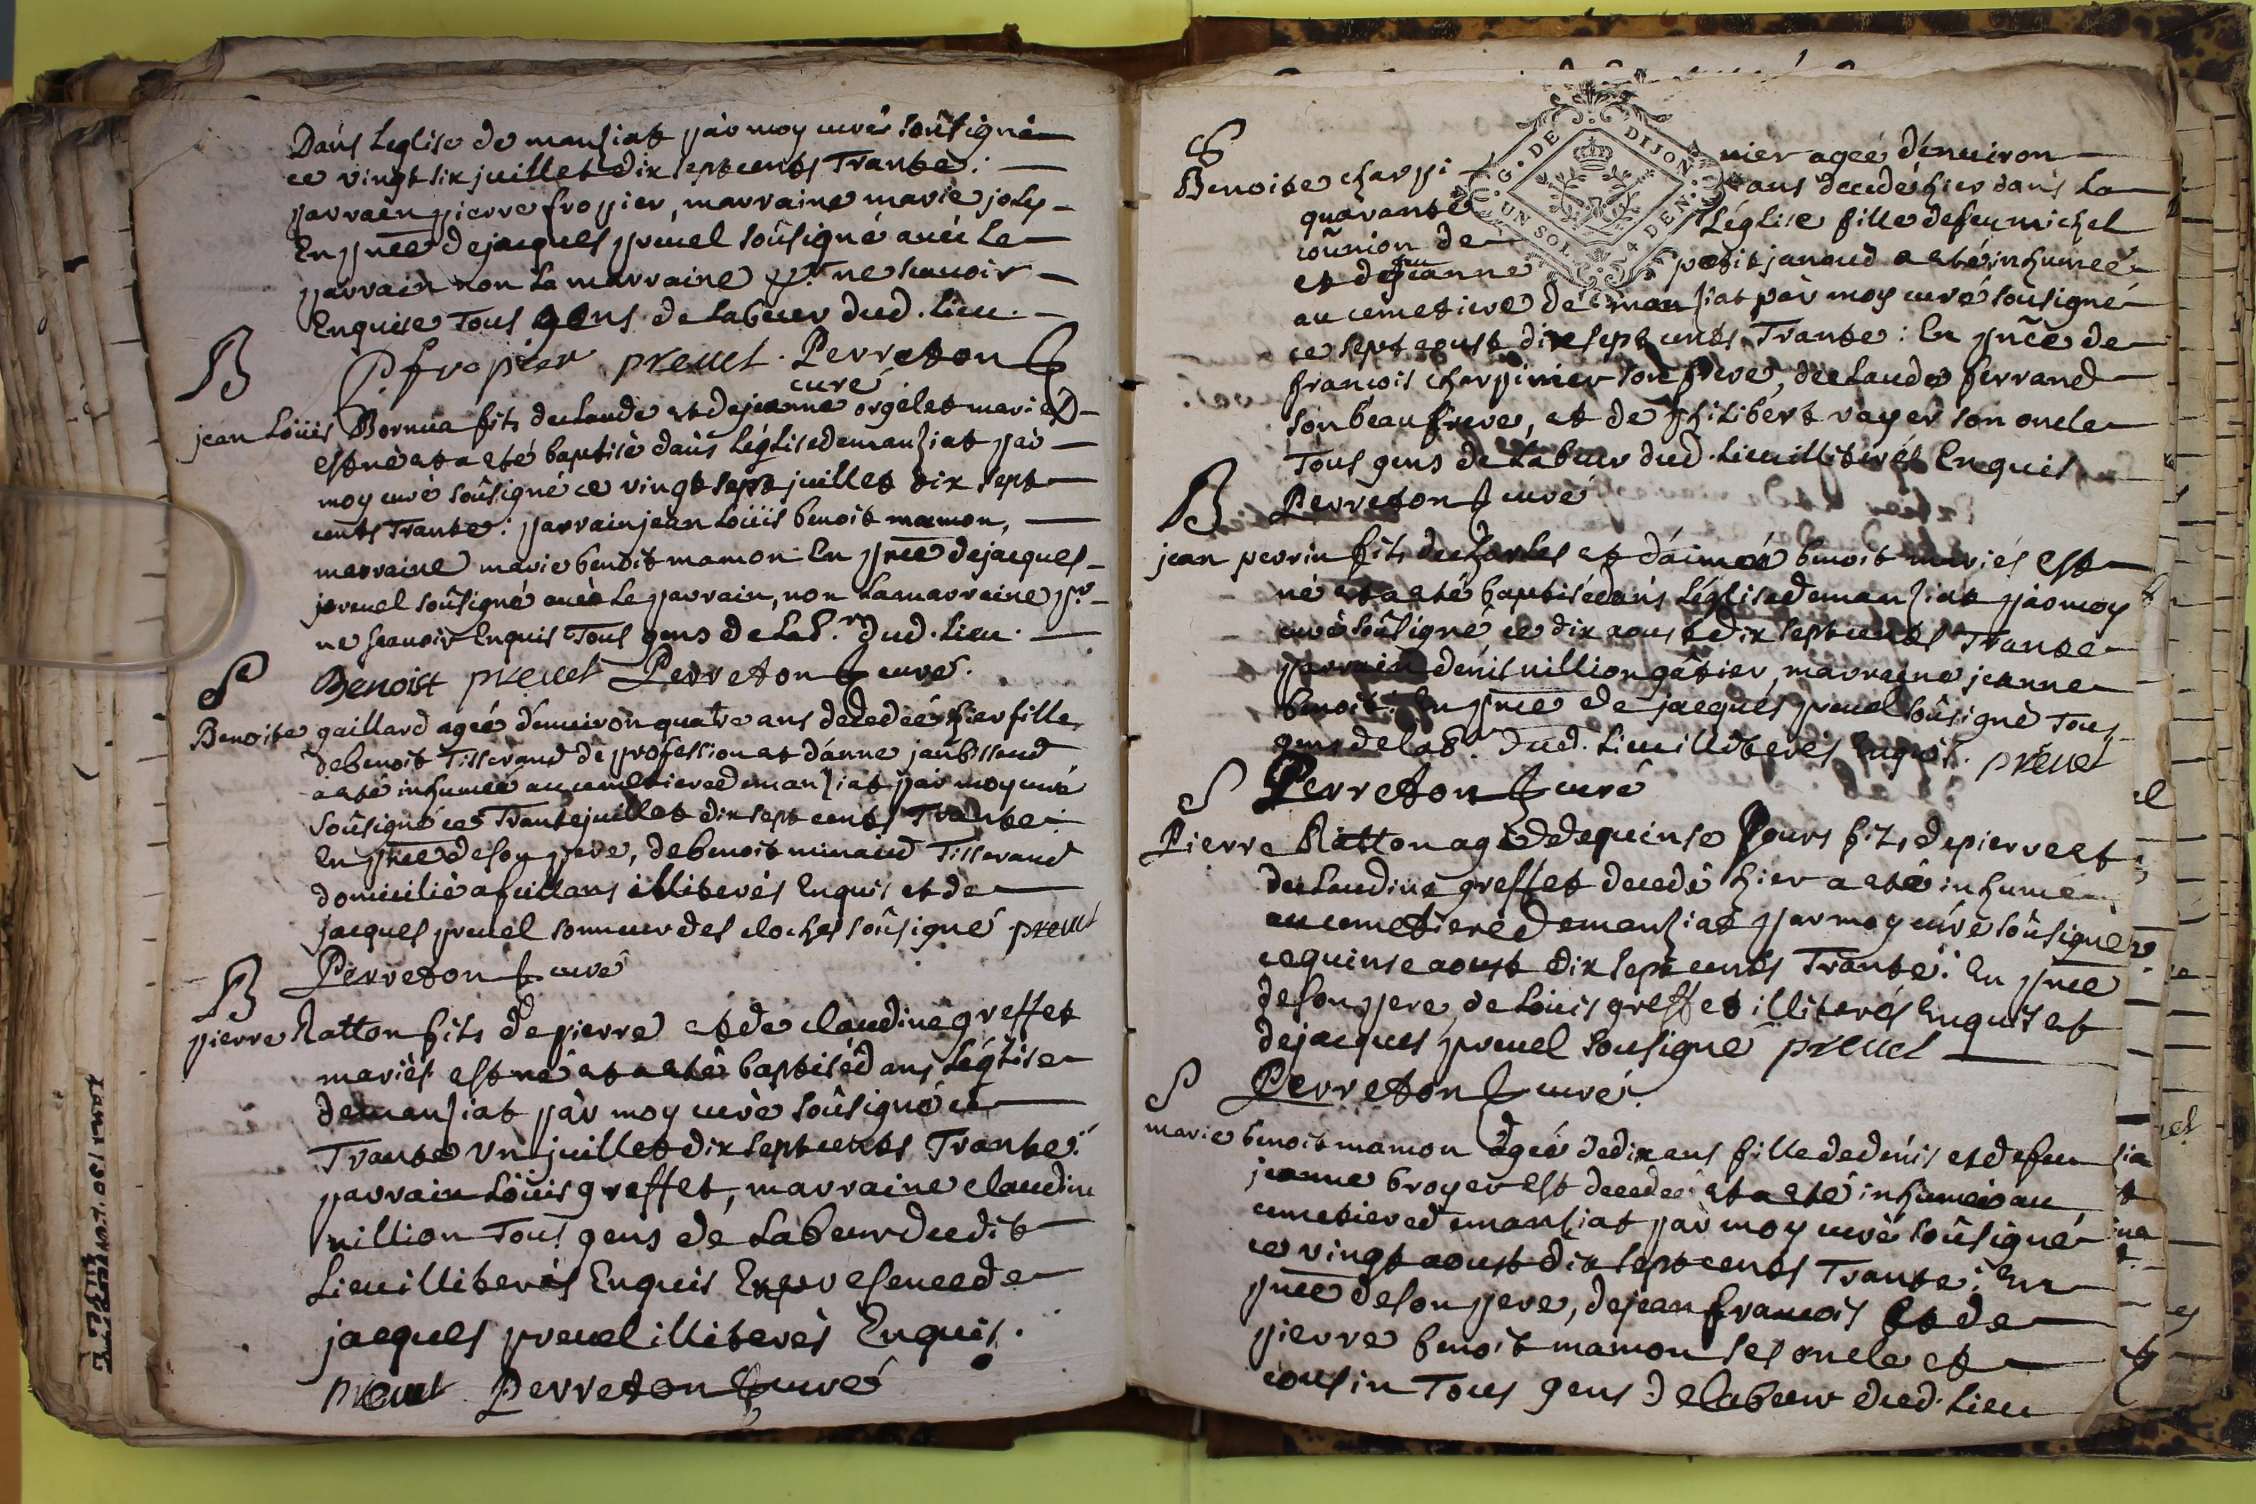 Dans Leglise de manziat par moy curé soûsigné
ce vingt six juillet dix sept cents Trante :
parrain pierre fropier, marraine marie joly
En pnce de jacques preuel soûsigné avec Le
parrain non La marraine pr. ne scauoir
Enquise Tous gens de Labeur dud. Lieu.
P. fropier preuel. Perreton
curé
B
jean Loüis Bornua fils de claude et de jeanne orgelet mariéD
est né et a eté baptisé dans Léglise de manziat par
moy curé soûsigné ce vingt sept juillet dix sept
cents Trante : parrain jean Loüis benoit mamon,
marraine marie benoit mamon. En pnce de jacques
preuel soûsigné avec Le parrain, non La marraine pr.
ne scauoir Enquis Tous gens de Lab.r dud. Lieu.
Benoist preuel Perreton curé.
S
Benoite gaillard ageé d'enuiron quatre ans decedeé hier fille
de benoit Tisserand de profession et d'anne janbillaud
a eté inhumeé au cemetiere de manziat par moy curé
soûsigné ce Trante juillet dix sept cents Trante :
En pnce de son pere, de benoit minaud Tisserand
domicilié a feillans illiterés Enquis et de
jacques preuel sonneur des cloches soûsigné preuel
Perreton curé
B
pierre Ratton fils de pierre et de claudine greffet
mariés est né et a eté baptisé dans Léglise
de manziat par moy curé soûsigné ce
Trante Un juillet dix sept cents Trante :
parrain Loüis greffet, marraine claudine
million Tous gens de Labeur dudit
Lieu illiterés Enquis En presence de
jacques preuel illiterés Enquis.
preuel Perreton curé
G. DE DIJON
UN SOL 4 DEN.
S
Benoite charpinier ageé d'enuiron
quarante ans decedé hier dans La
coñunion de Léglise fille de feu michel
et de feu jeanne petit janaud a eté inhumeé
au cemetiere de manziat par moy curé soûsigné
ce sept aoust dix sept cents Trante : En pnce de
francois charpinier son frere, de claude ferrand
son beau frere, et de philibert vayer son oncle
Tous gens de Labeur dud. Lieu illiterés Enquis
Perreton curé
B
jean perrin fils de charles et d'aimeé benoit mariés est
né et a eté baptisé dans Léglise de manziat par moy
curé soûsigné ce dix aoust dix sept cents Trante
parrain denis million gâtier, marraine jeanne
benoit : En pnce de jacques preuel soûsigné Tous
gens de lab.r dud. Lieu illiterés Enquis. preuel
Perreton curé
S
Pierre Ratton agé de quinse jours fils de pierre et
de claudine greffet decedé hier a eté inhumé
au cemetiere de manziat par moy curé soûsigné
ce quinse aoust dix sept cents Trante : En pnce
de son pere, de Loüis greffet illiterés Enquis et
de jacques preuel sousigné preuel
Perreton curé.
S
marie benoit mamon ageé de dix ans fille de denis et de feu
jeanne broyer est decedeé et a eté inhumeé au
cemetiere de manziat par moy curé soûsigné
ce vingt aoust dix sept cents Trante : En
pnce de son pere, de jean francois et de
pierre benoit mamon ses oncle et
cousin Tous gens de labeur dud. Lieu